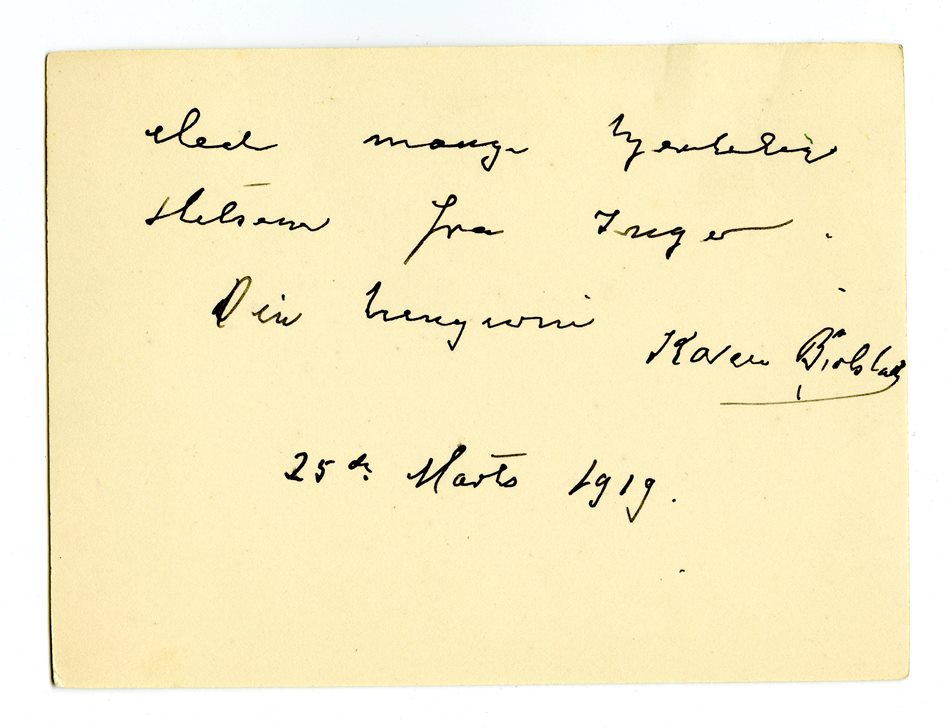 Med mange hjertelige
Hilsener fra Inger.
Din hengivne
Karen Bjølstad
25de Marts 1919.